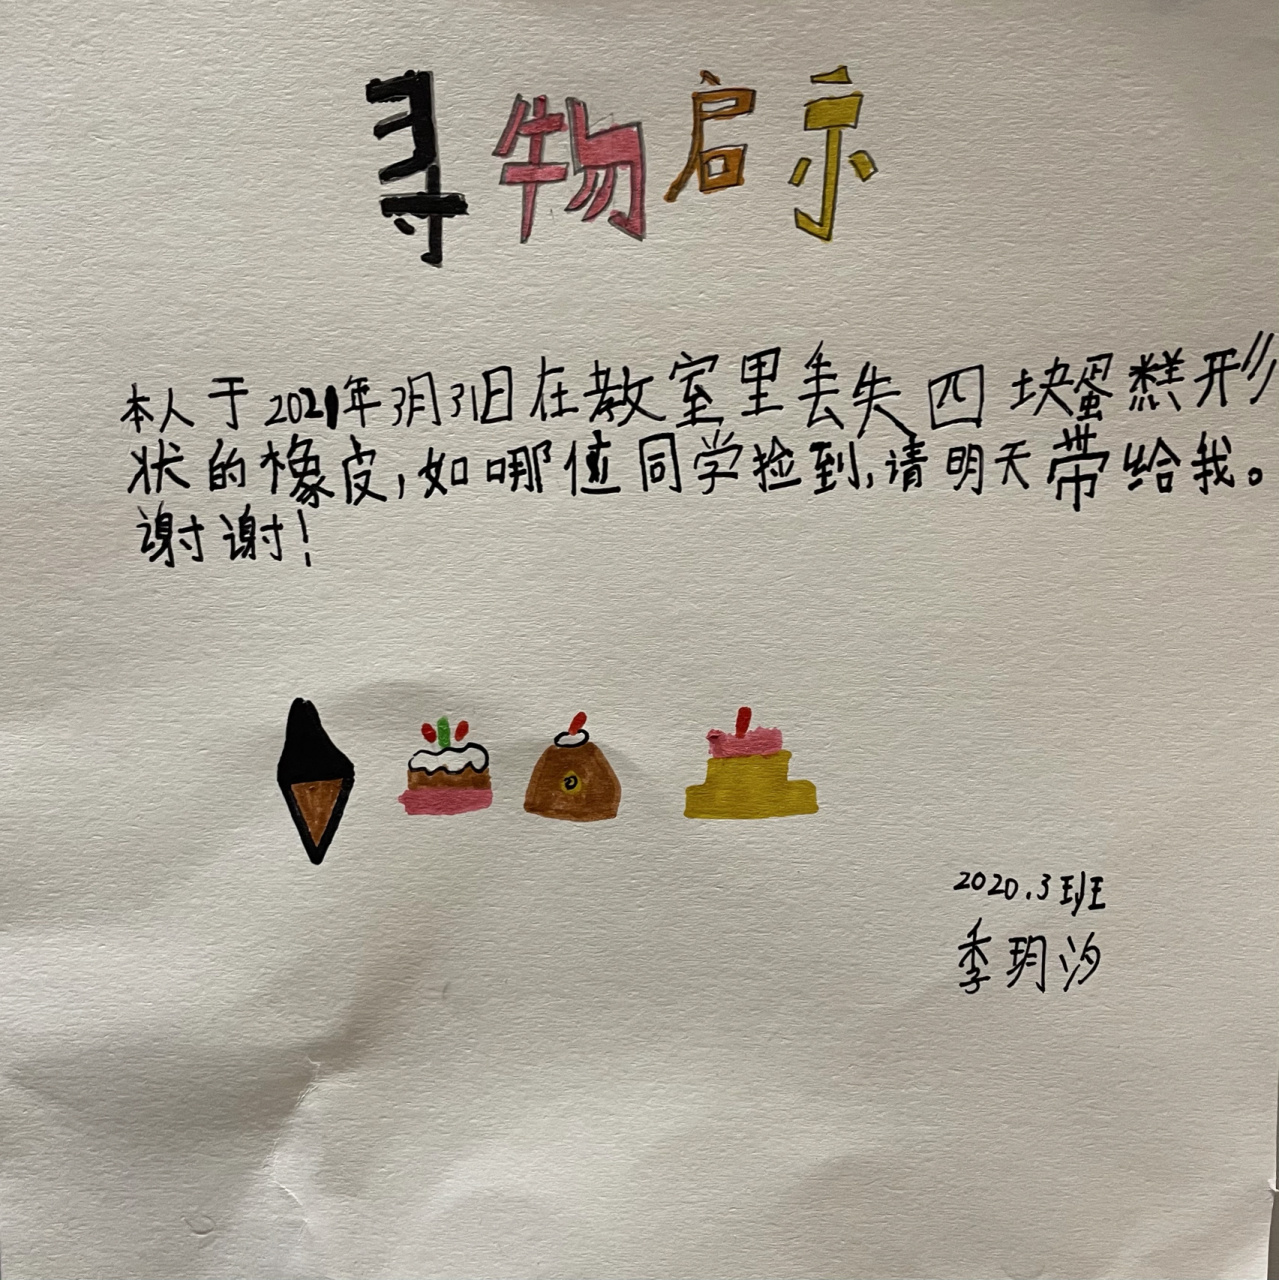 寻物启示
本人于2021年3月3日在教室里丢失四块蛋糕形
状的橡皮,如哪位同学捡到,请明天带给我。
谢谢!
2020.3班
季玥汐